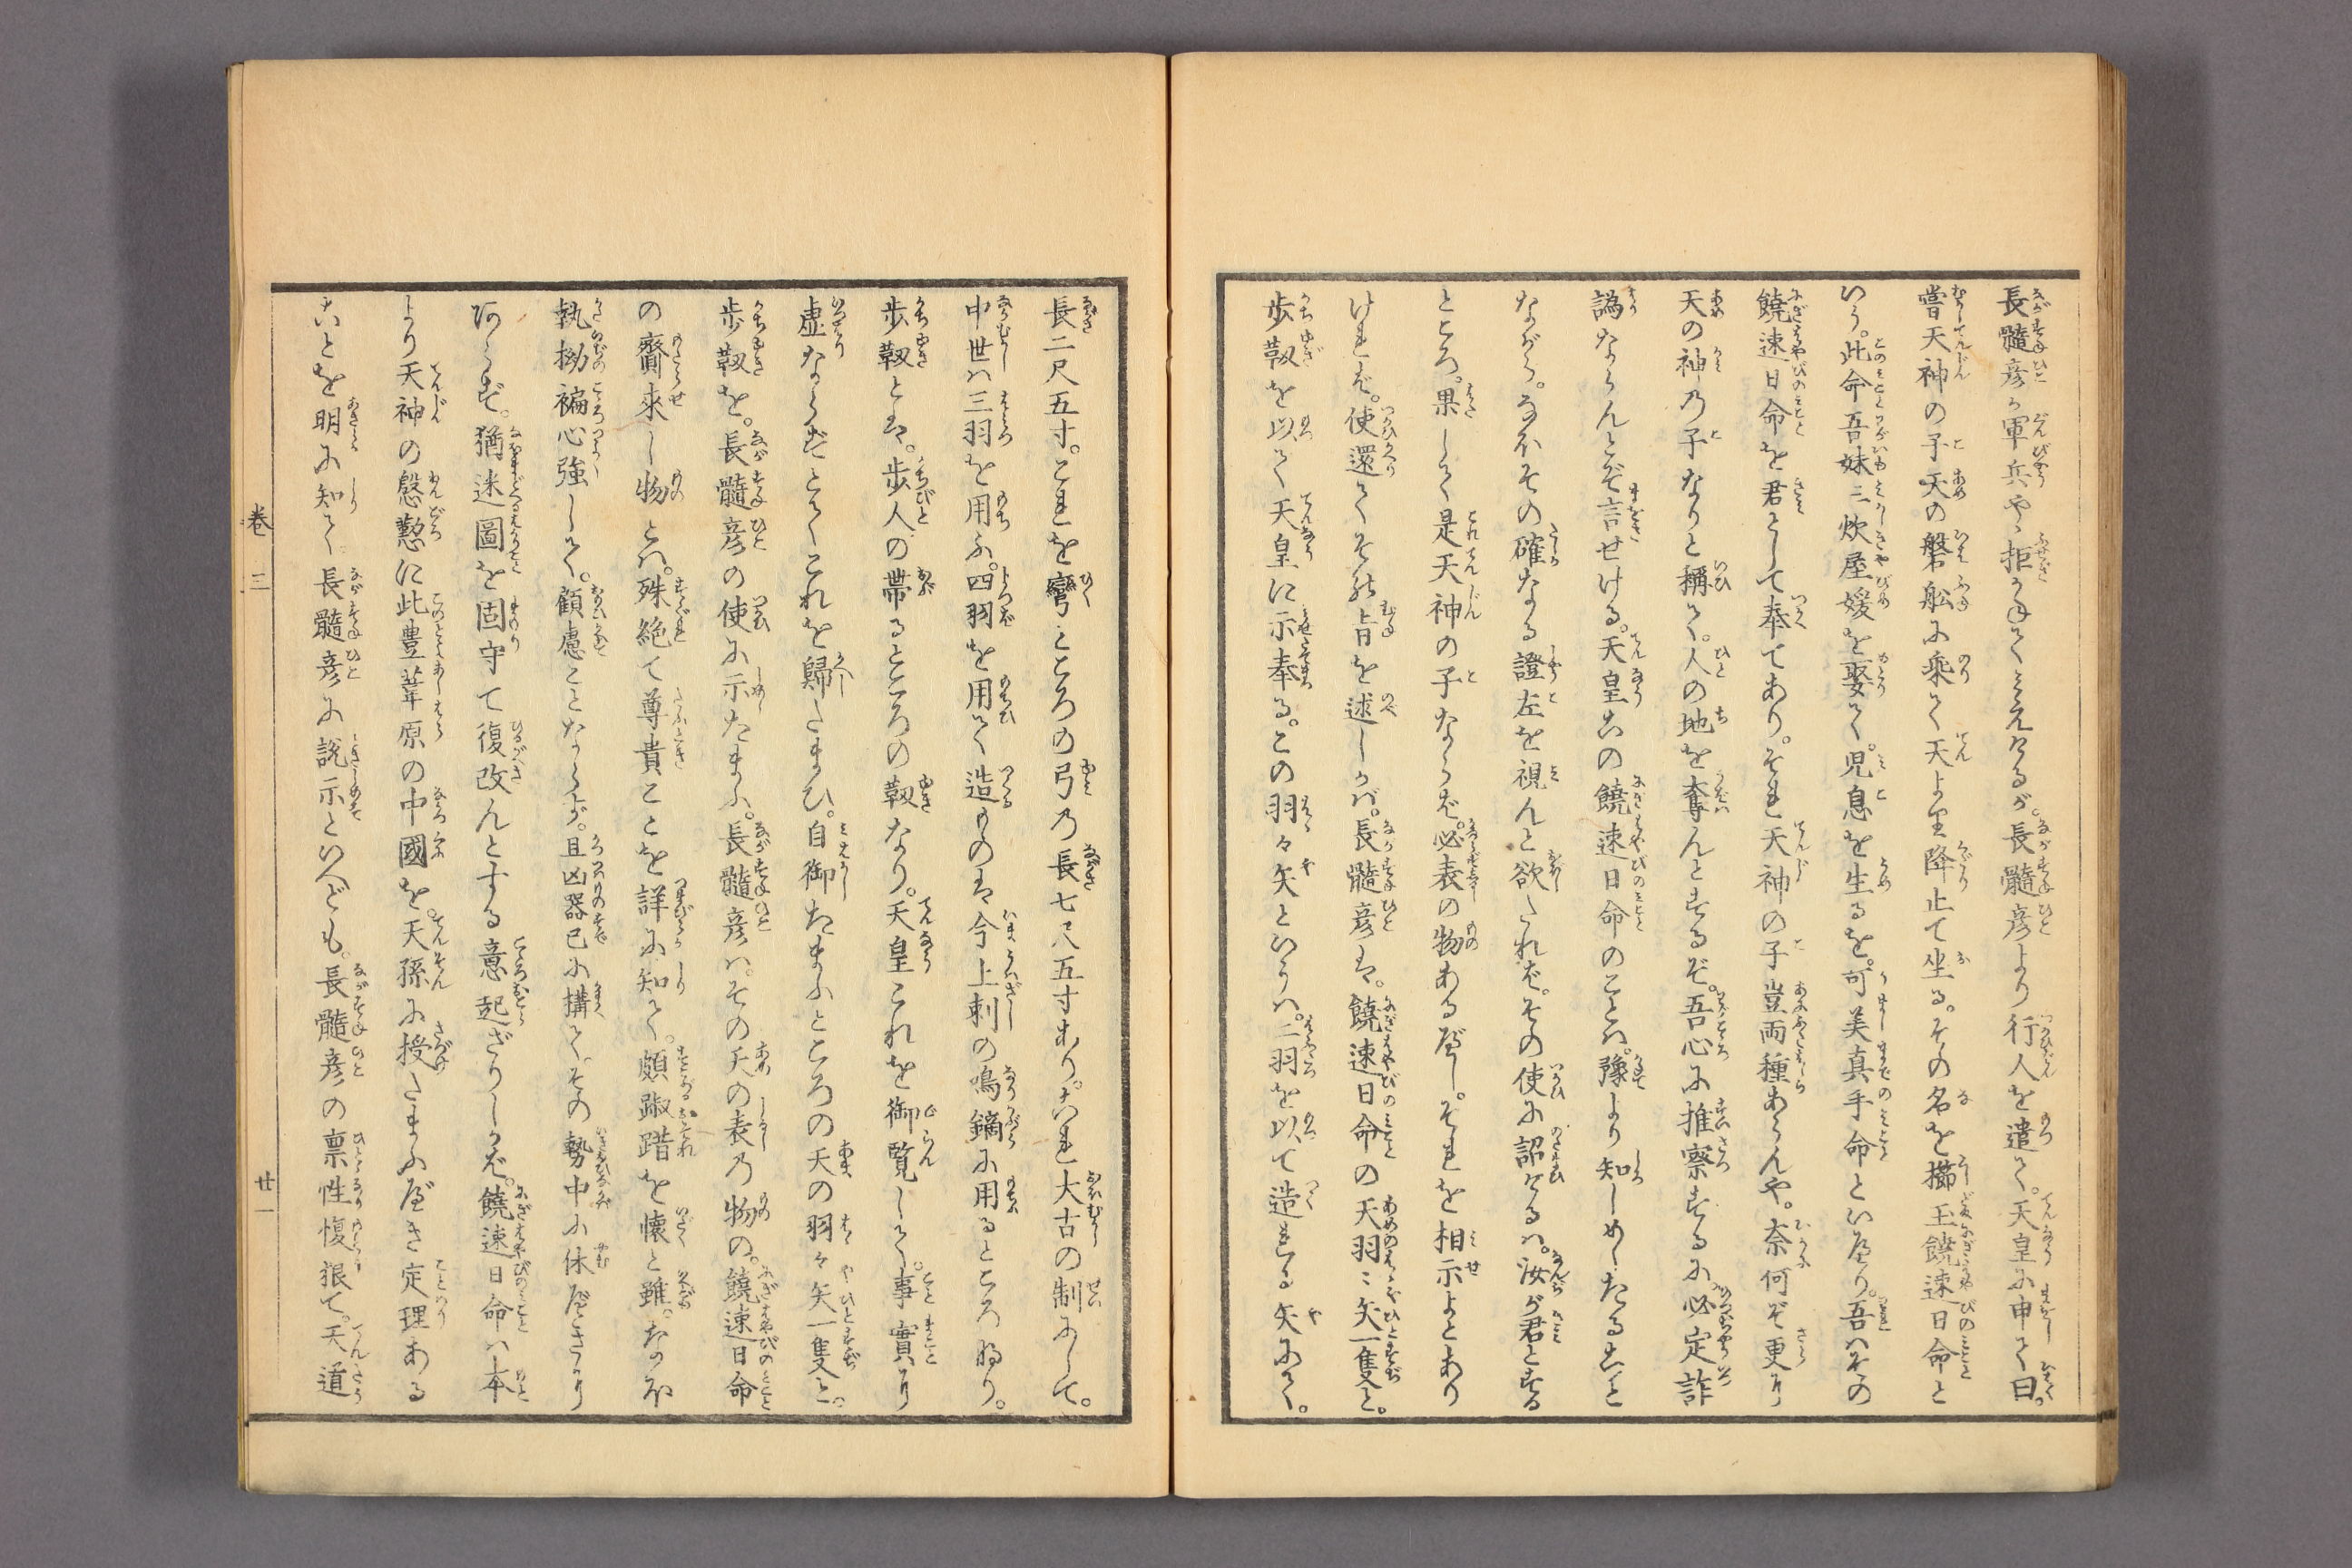 長髓彦が軍兵やゝ拒かねてみえけるが。長髓彦より行人を遣て。天皇に申て曰。
嘗天神の子天の磐舩に乘て天より降止て坐る。その名を櫛玉饒速日命と
いう。此命吾妹三炊屋媛を娶て。児息を生るを。可美真手命といへり。吾はその
饒速日命を君として奉てあり。それ天神の子豈両種あらんや。奈何ぞ更に
天の神乃子なりと稱て。人の地を奪んとするぞ。吾心に推察するに。必定詐
譌ならんとぞ言せける。天皇この饒速日命のことは。豫より知しめしたること
ながら。なほその確なる證左を視んと欲したれば。その使に詔けるは。汝が君とする
ところ。果して是天神の子ならば。必表の物あるべし。それを相示よとあり
ければ。使還てその旨を述しかば。長髓彦は。饒速日命の天羽〻矢一隻と。
歩靫を以て天皇に示奉る。この羽々矢といふは。二羽を以て造れる矢にて。
長二尺五寸。これを彎ところの弓乃長七尺五寸あり。これ大古の制にして。
中世は三羽を用ふ。四羽を用て造ものは今上刺の鳴鏑に用るところ也。
歩靫とは。歩人の帯るところの靫なり。天皇これを御覧して。事實に
虚ならずとてこれを歸したまひ。自御たまふところの天の羽々矢一隻と。
歩靫を。長髓彦の使に示たまふ。長髓彦は。その天の表乃物の。饒速日命
の齎來し物とは。殊絶て尊貴ことを詳に知て。頗踧踖を懐と雖。なほ
執拗褊心強して。顧慮ことならず。且凶器已に構て。その勢中に休べきに
あらず。猶迷圖を固守て復改んとする意起ざりしかば。饒速日命は本
より天神の慇懃に此豊葦原の中國を。天孫に授たまふべき定理ある
ことを明に知て。長髓彦に説示といへども。長髓彦の禀性愎狠て。天道
巻三
廿一